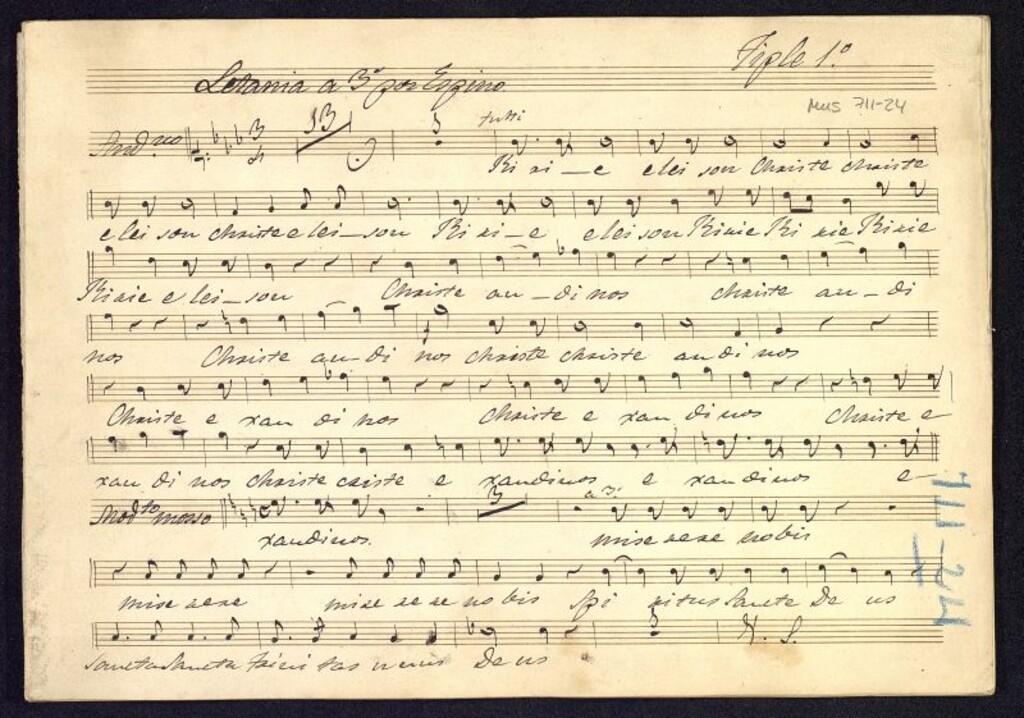 Tiple 1.º
Letania a 3.º por Espino
Mus 711-24
And.no 3 13 tutti
Kiri_e elei son Christe christe
elei son christe e lei_son Kiri_e elei son Kirie Kirie Kirie
Kirie e lei_son Christe au_di nos christe au_di
nos Christe au_di nos christe christe au di nos
Christe e xau di nos Christe e xau di nos Christe e
xau di nos christe criste e xaudinos e xaudinos e_
Mod.to mosso 3 a 3.
xaudinos. mise rere nobis
mise rere mise re re no bis Spi ritus Sancte De us
Sancta Sancta Trini tas unus De us
711-24